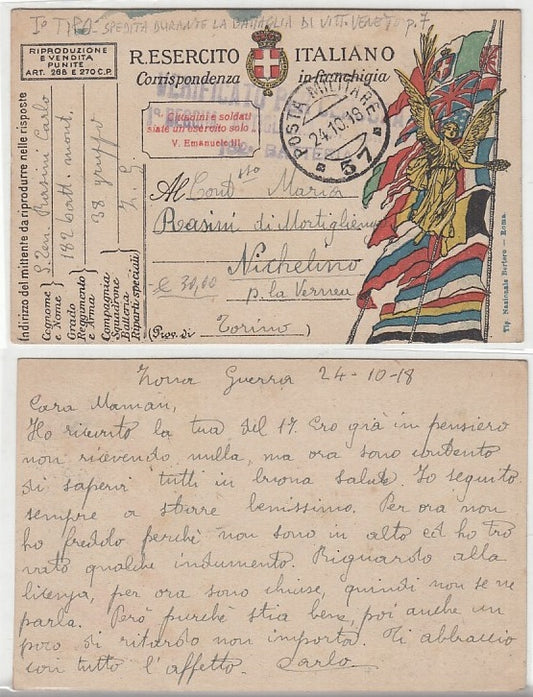 I° TIPO - SPEDITA DURANTE LA BATTAGLIA DI VITT. VENETO p. 7
RIPRODUZIONE
E VENDITA
PUNITE
ART. 268 E 270 C.P.
R. ESERCITO ITALIANO
Corrispondenza in franchigia
VERIFICATO
Cittadini e soldati
siate un esercito solo
V. Emanuele III.
POSTA MILITARE
24.10.18
57
Al Cont.sto Maria
Rasini di Mortigliengo
Nichelino
p. la Vernea
Torino
(Prov. di )
£ 30,00
Indirizzo del mittente da riprodurre nelle risposte
Cognome e Nome
Grado
Reggimento e Arma
Compagnia
Squadrone
Batteria
Riparti speciali
S. Ten. Rasini Carlo
182 batt. mont.
38 gruppo
Z. G.
Tip. Nazionale Bertero - Roma.
Zona Guerra 24-10-18
Cara Maman,
Ho ricevuto la tua del 17. Ero già in pensiero
non ricevendo nulla, ma ora sono contento
di sapervi tutti in buona salute. Io seguito
sempre a stare benissimo. Per ora non
ho freddo perchè non sono in alto ed ho tro
vato qualche indumento. Riguardo alla
licenza, per ora sono chiuse, quindi non se ne
parla. Però purchè stia bene, poi anche un
poco di ritardo non importa. Ti abbraccio
con tutto l'affetto. Carlo